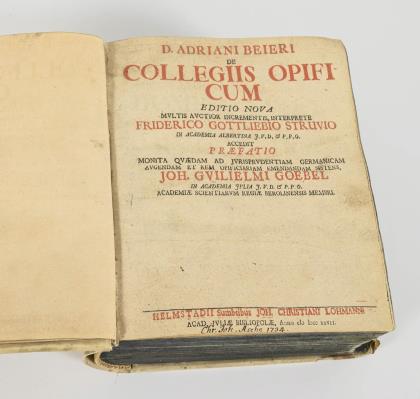 D. ADRIANI BEIERI
DE
COLLEGIIS OPIFI
CUM
EDITIO NOVA
MVLTIS AVCTIOR INCREMENTIS, INTERPRETE
FRIDERICO GOTTLIEBIO STRUVIO
IN ACADEMIA ALBERTINA J. V. D. & P. P. O.
ACCEDIT
PRÆFATIO
MONITA QVÆDAM AD JVRISPRVDENTIAM GERMANICAM
AVGENDAM ET REM OPIFICIARIAM EMENDANDAM SISTENS,
JOH. GVILIELMI GOEBEL
IN ACADEMIA JVLIA J. V. D. & P. P. O.
ACADEMIÆ SCIENTIARVM REGIÆ BEROLINENSIS MEMBRI.
HELMSTADII Sumtibus JOH. CHRISTIANI LOHMANNI
ACAD. JVLIÆ BIBLIOPOLÆ, Anno
Chr. Joh. Asche 1734.